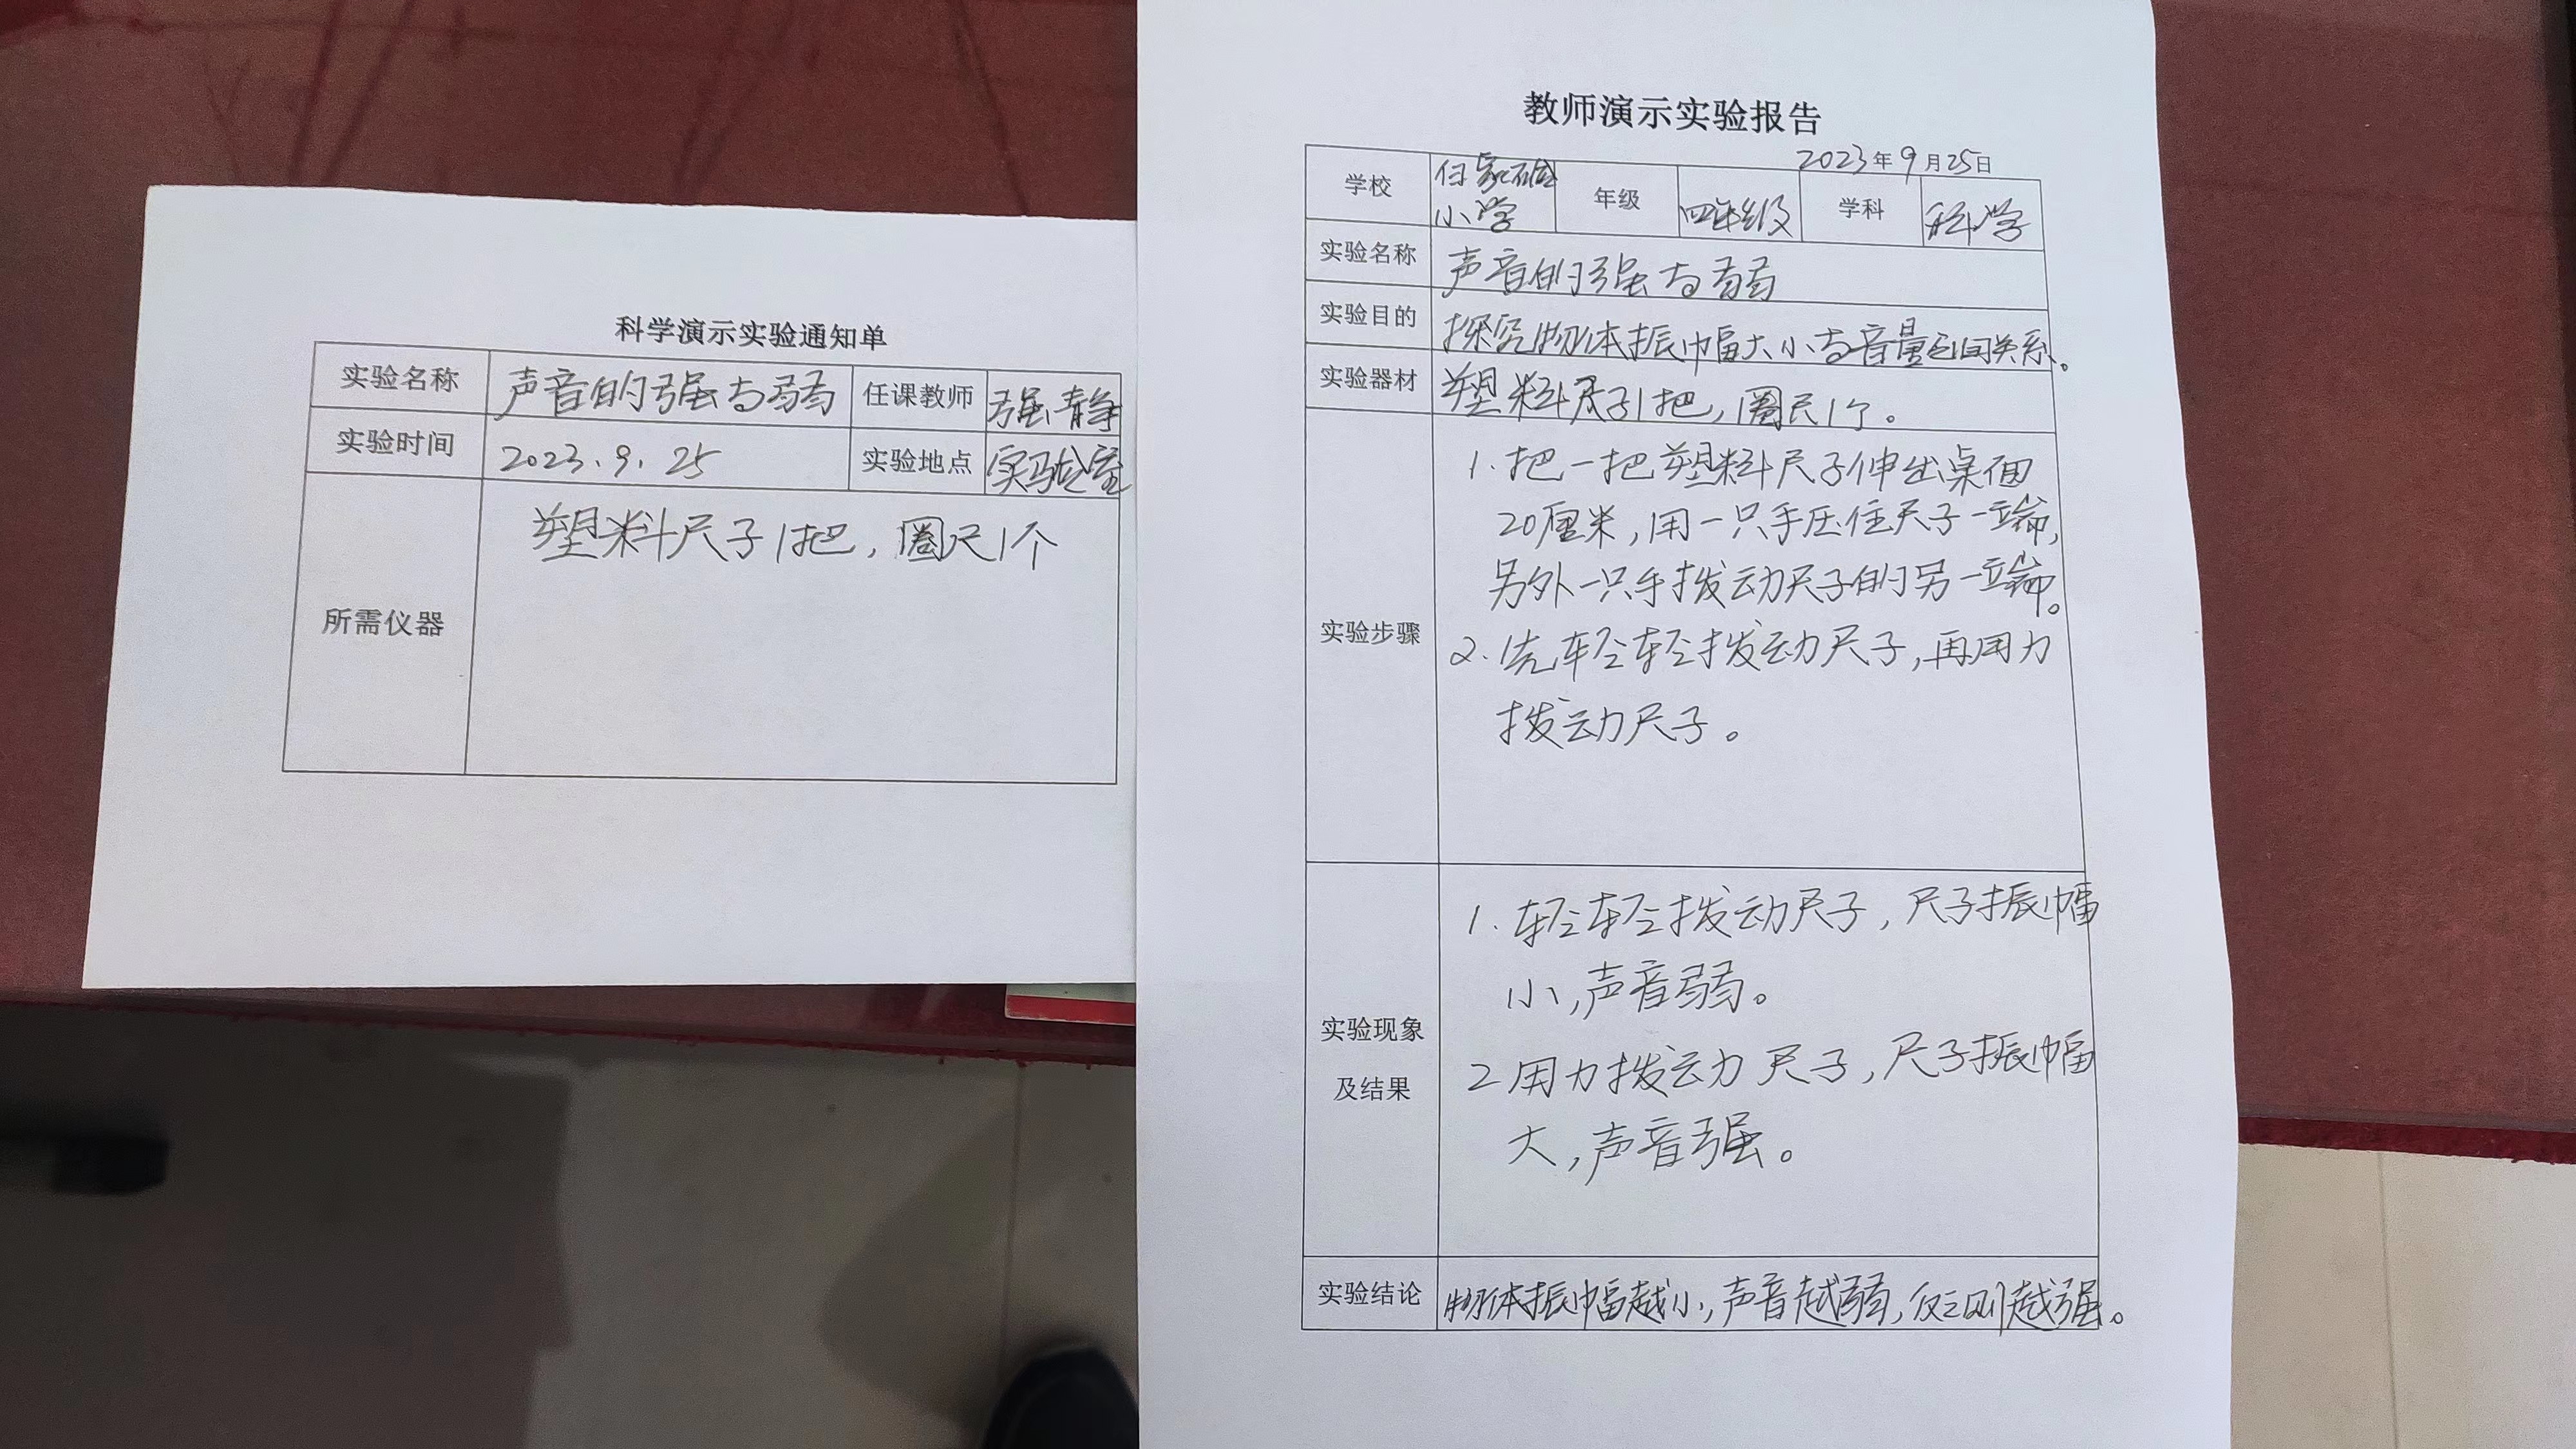 科学演示实验通知单
实验名称 声音的强与弱 任课教师 强静
实验时间 2023.9.25 实验地点 实验室
所需仪器 塑料尺子1把，圈尺1个
教师演示实验报告
2023年9月25日
学校 任家硷小学 年级 四年级 学科 科学
实验名称 声音的强与弱
实验目的 探究物体振幅大小与音量之间关系。
实验器材 塑料尺子1把，圈尺1个。
实验步骤
1. 把一把塑料尺子伸出桌面
20厘米，用一只手压住尺子一端，
另外一只手拨动尺子的另一端。
2. 先轻轻拨动尺子，再用力
拨动尺子。
实验现象
及结果
1. 轻轻拨动尺子，尺子振幅
小，声音弱。
2 用力拨动尺子，尺子振幅
大，声音强。
实验结论 物体振幅越小，声音越弱，反之则越强。